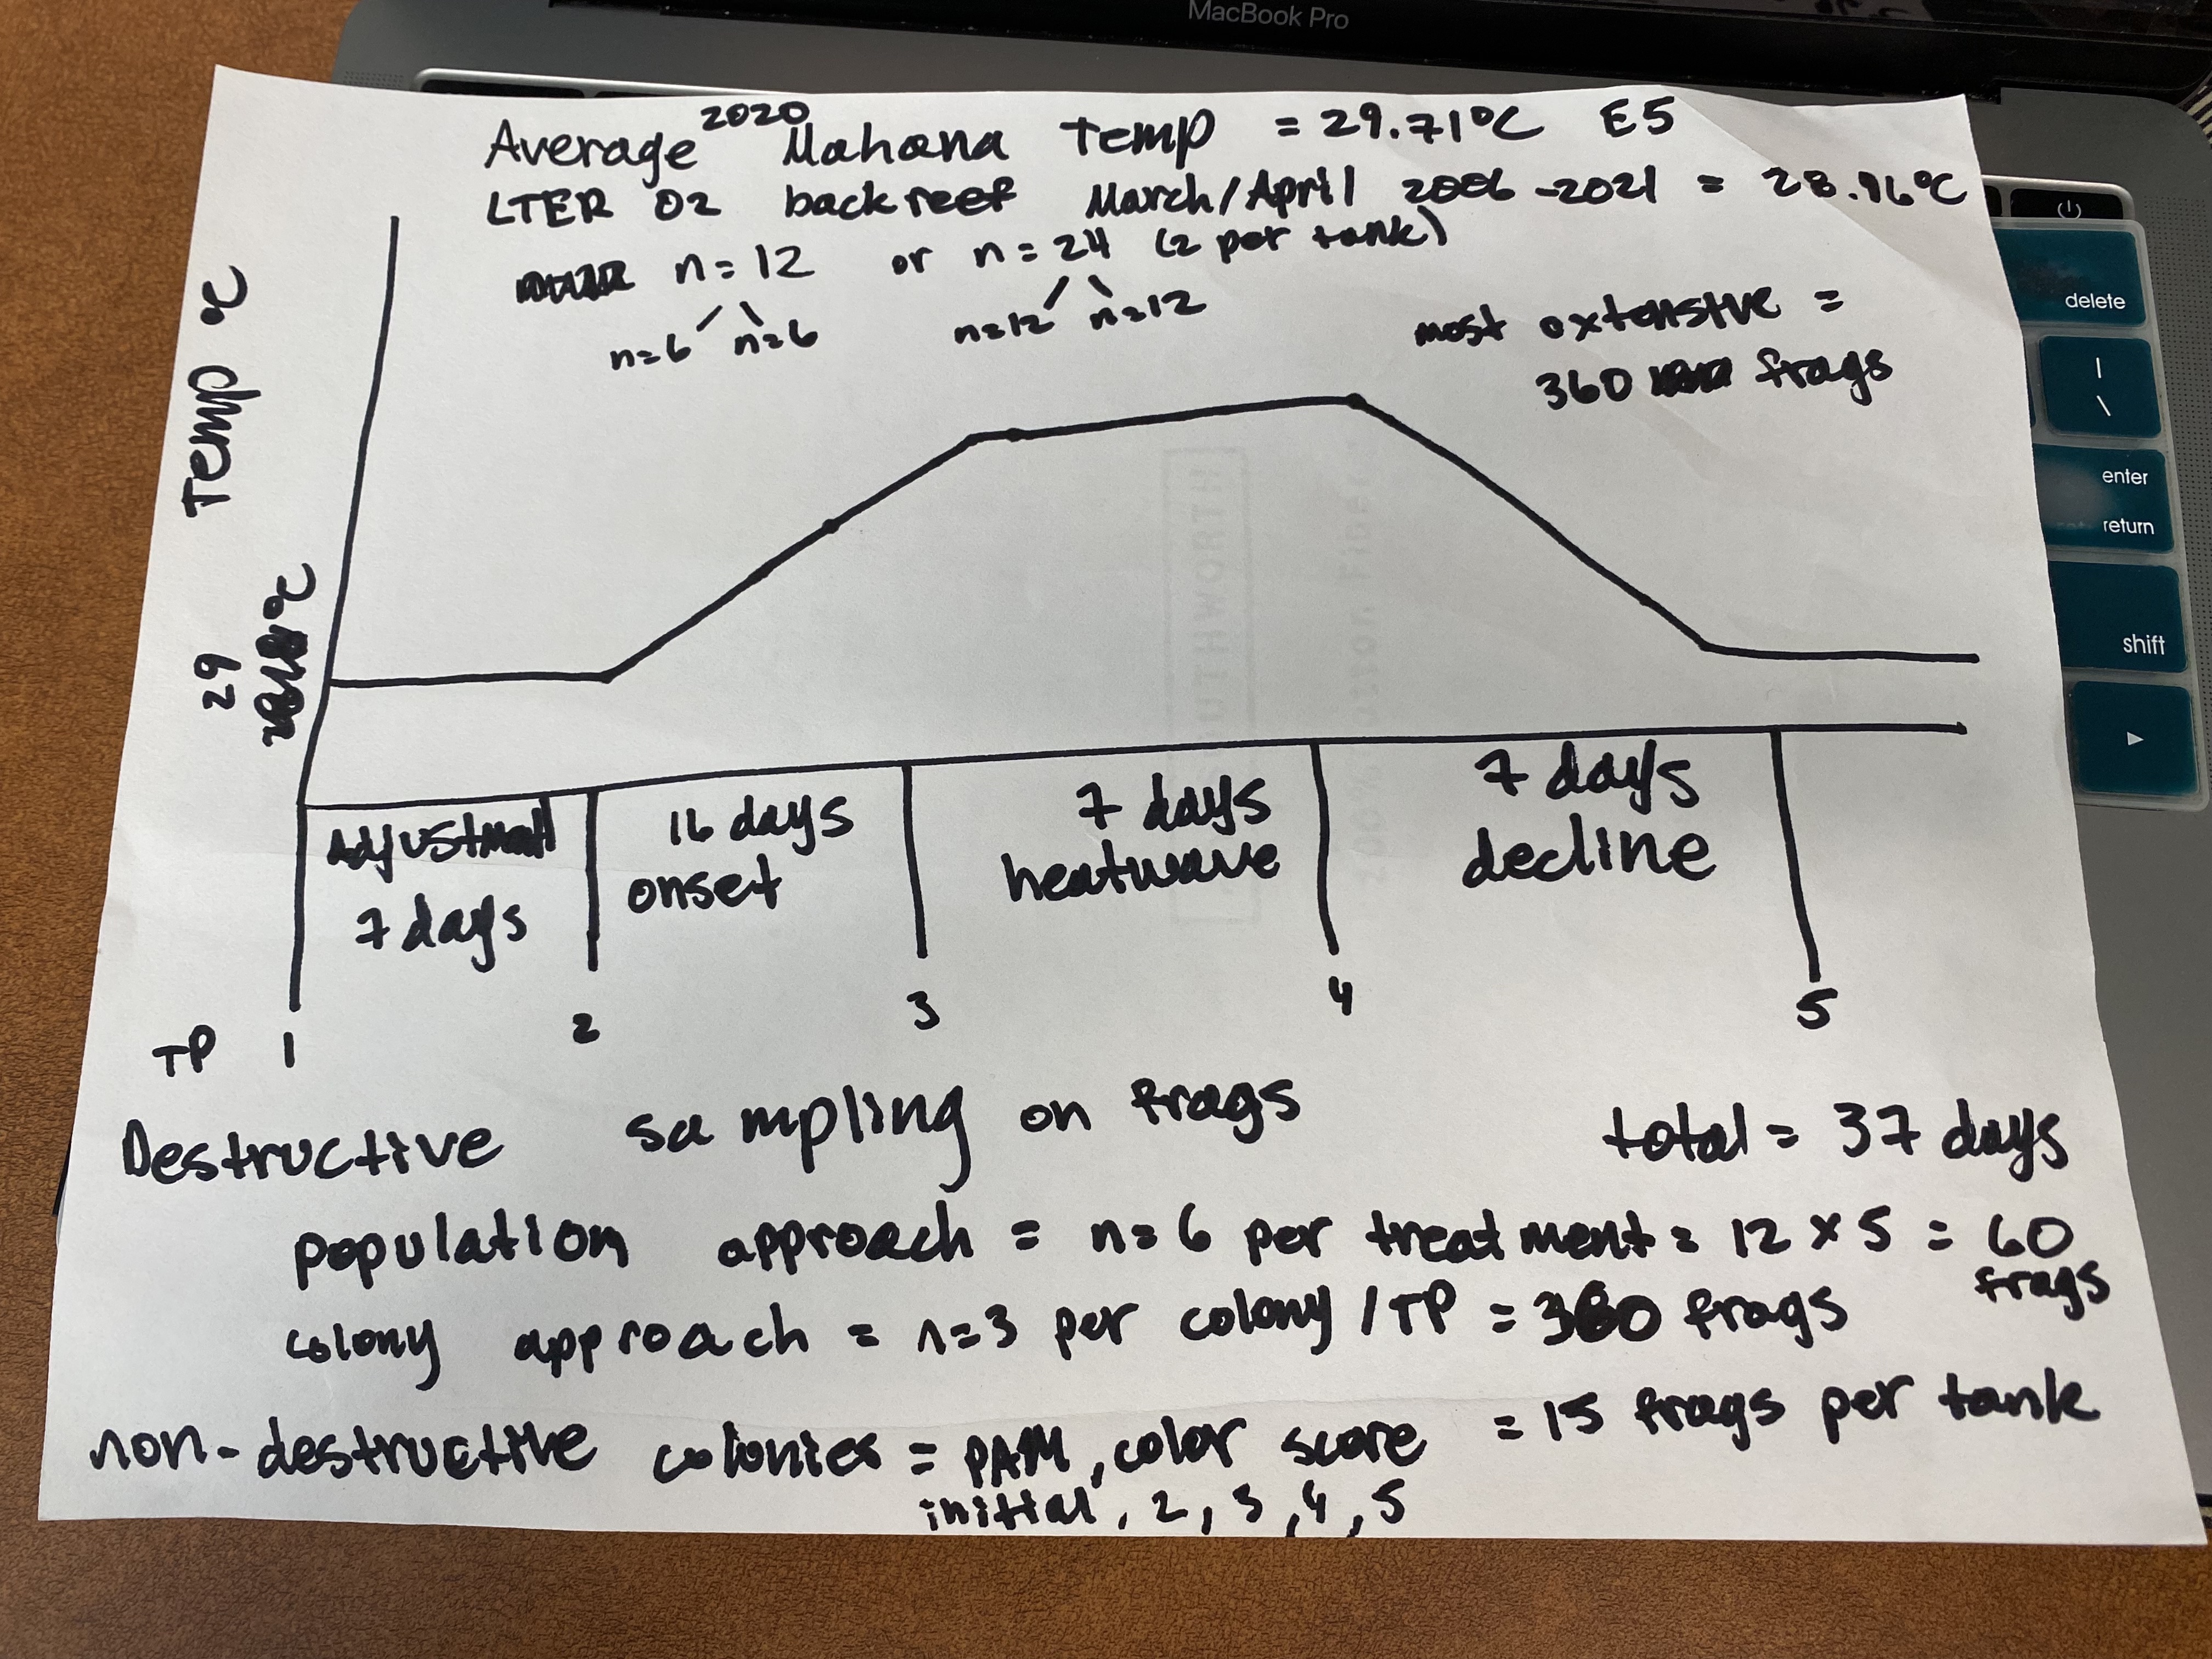 MacBook Pro
Average 2020 Mahana Temp = 29.71°C E5
LTER 02 backreef March/April 2006-2021 = 28.96°C
n=12 or n=24 (2 per tank)
n=6 n=6 n=12 n=12
most extensive =
360 frags
Temp °C
29
°C
Adjustment
7 days
16 days
onset
7 days
heatwave
7 days
decline
TP 1 2 3 4 5
Destructive sampling on frags
total = 37 days
population approach = n=6 per treatment = 12 x 5 = 60
frags
colony approach = n=3 per colony / TP = 360 frags
= 15 frags per tank
non-destructive colonies = PAM, color score
initial, 2, 3, 4, 5
delete
|
\
enter
return
shift
SOUTHWORTH